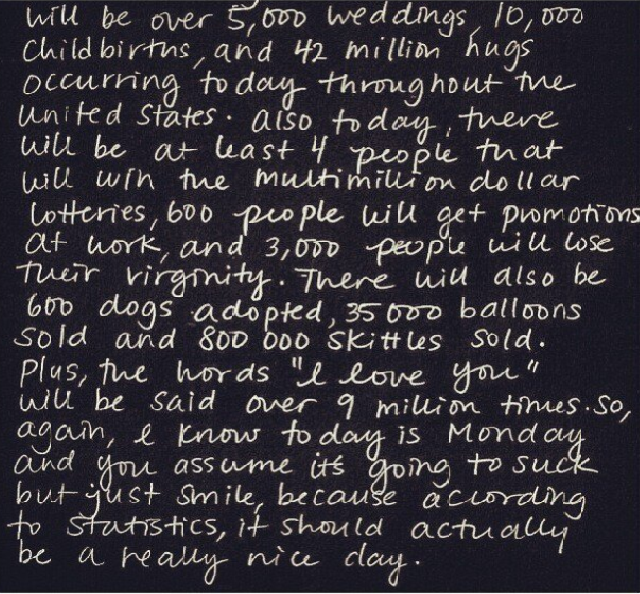 will be over 5,000 weddings, 10,000
childbirths, and 42 million hugs
occurring today throughout the
united states. also today, there
will be at least 4 people that
will win the multimillion dollar
lotteries, 600 people will get promotions
at work, and 3,000 people will lose
their virginity. There will also be
600 dogs adopted, 35 000 balloons
sold and 800 000 skittles sold.
Plus, the words "I love you"
will be said over 9 million times. So,
again, I know today is Monday
and you assume it's going to suck
but just smile, because acording
to statistics, it should actually
be a really nice day.